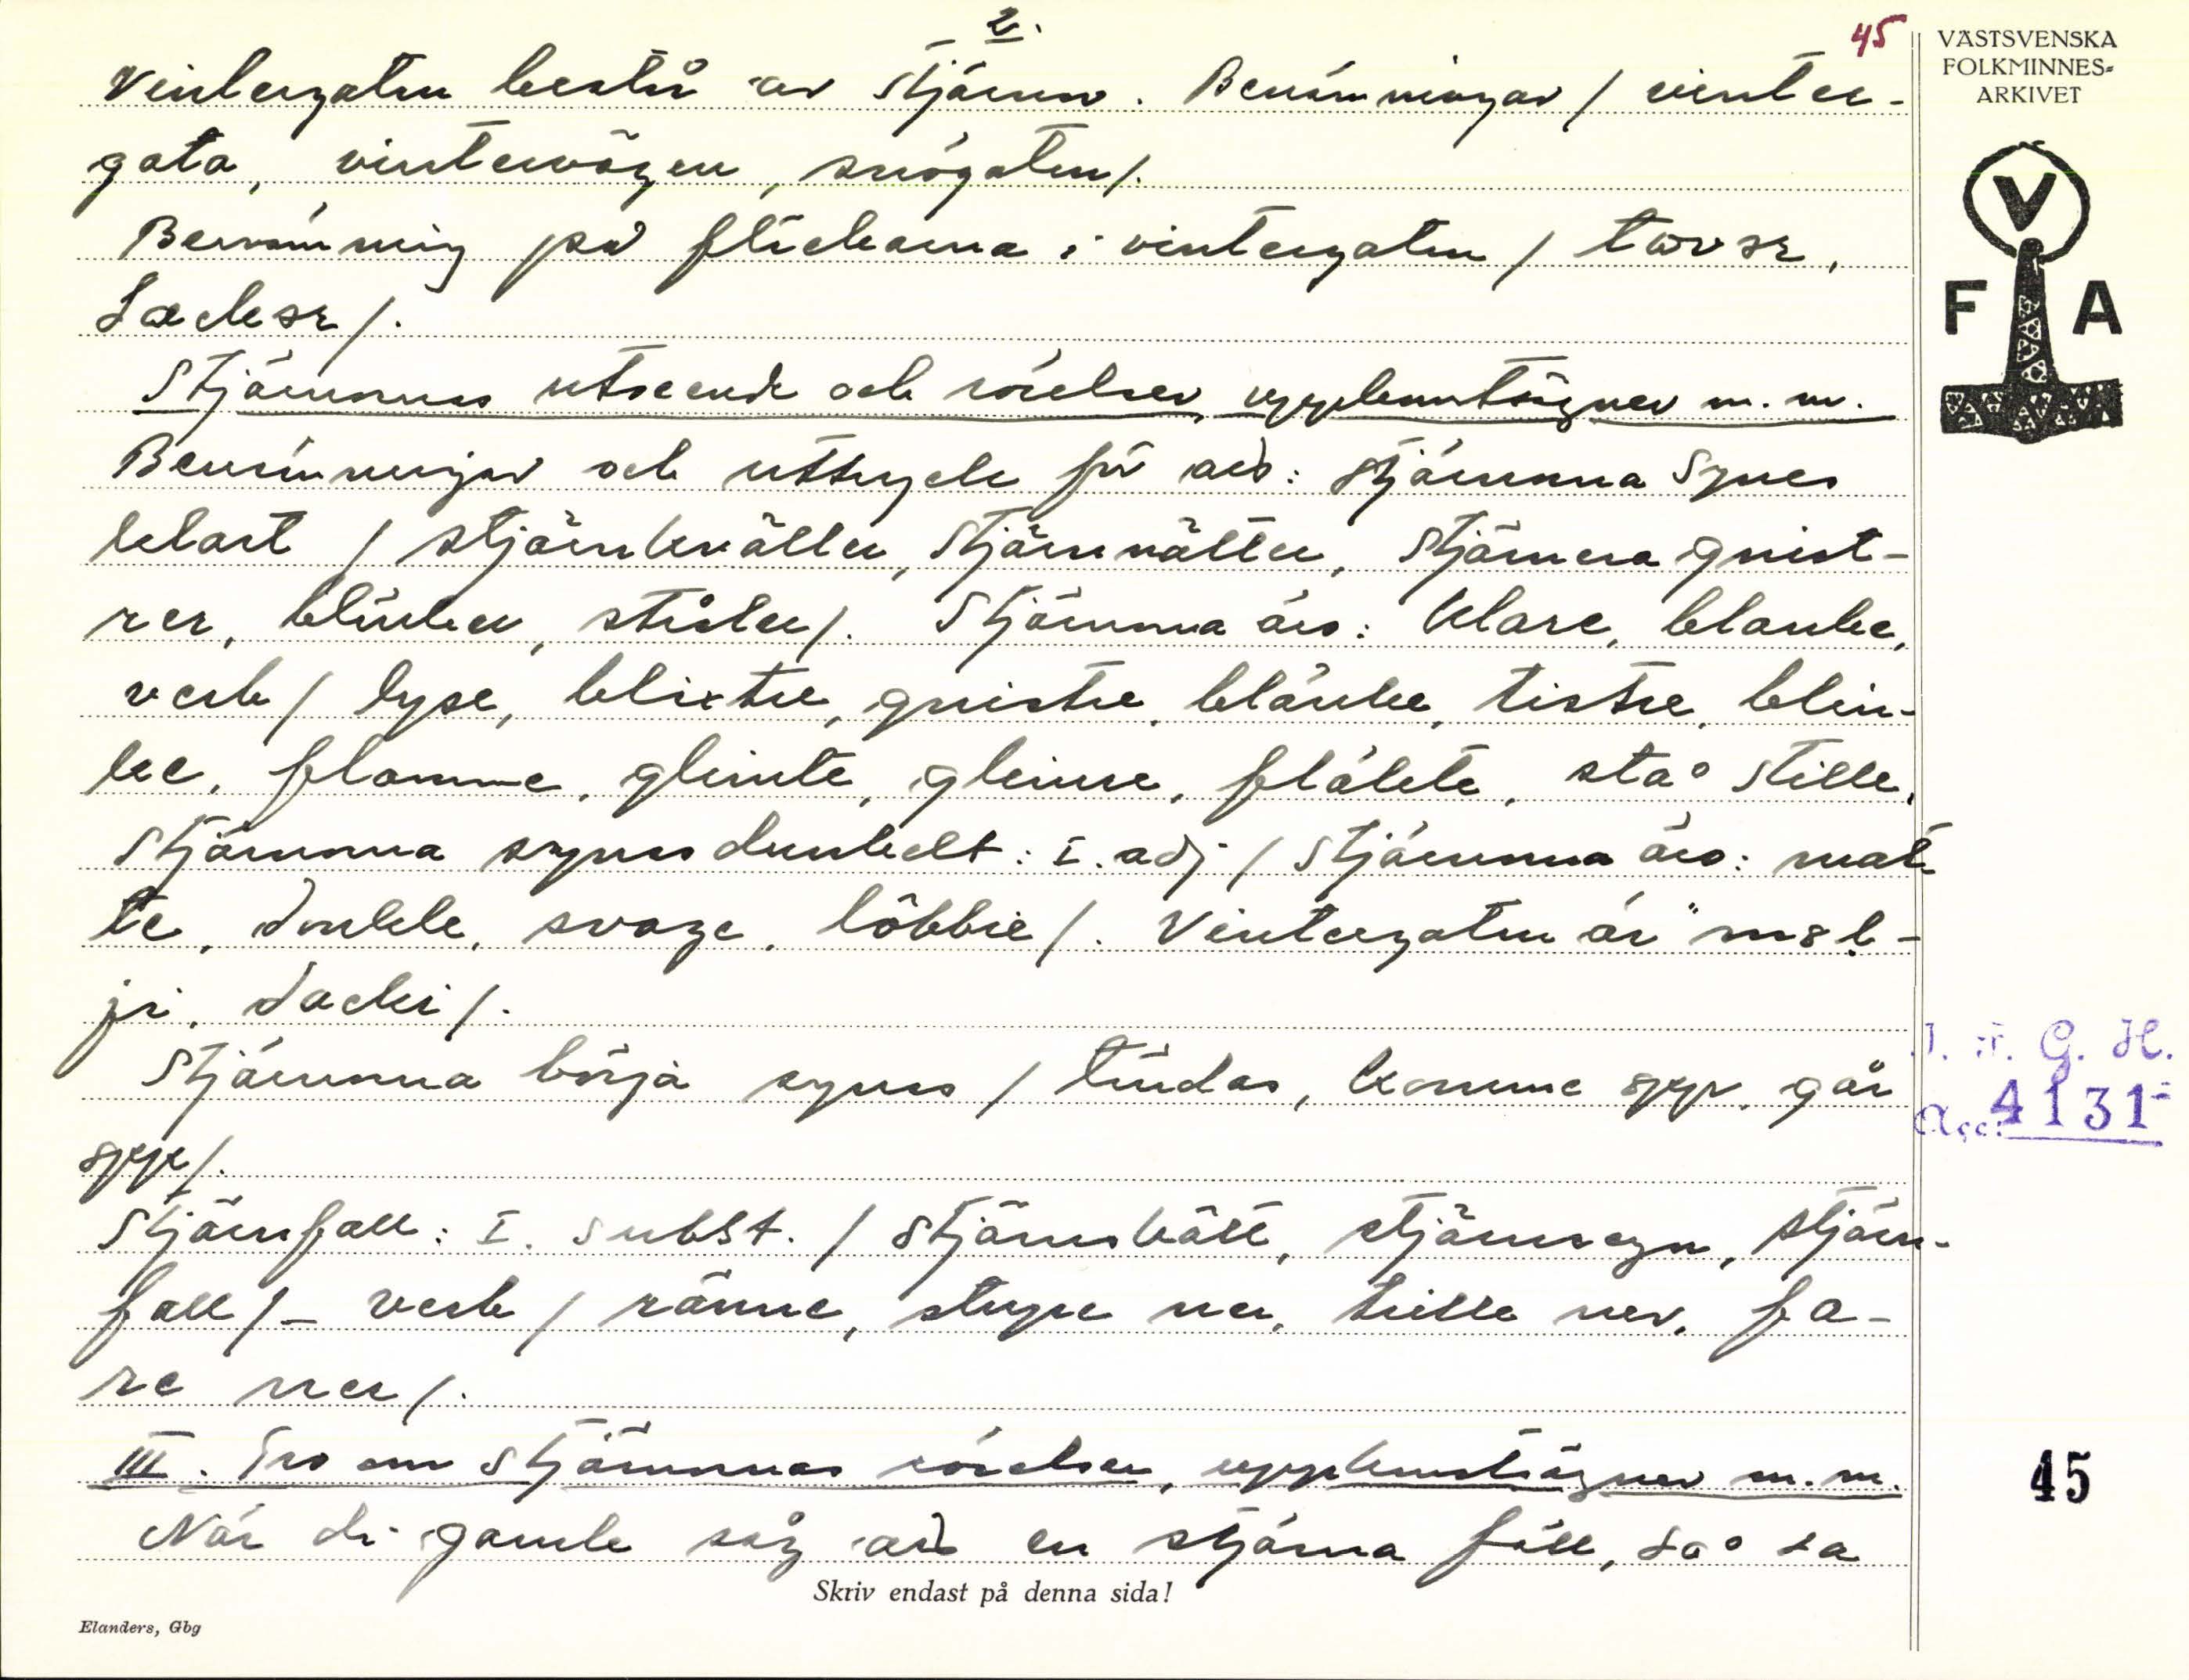 2.
45
Vintergatan består av stjärnor. Benämningar / vinter-
gata, vintervägen, snögatan /.
Benämning på fläckarna i vintergatan / tavsr,
Læksr /.
Stjärnornas utseende och rörelser, uppkomstsägner m.m.
Benämningar och uttryck för att: stjärnorna synes
klart / stjärnkväller, stjärnnätter, stjärnera gnist-
rer, blinker, stråler /. Stjärnorna äro: klare, blanke,
verb / lyse, blixtre, gnistre, blänke, tistre, blin-
ke, flamme, glimte, glimre, flälete, sta° stille.
Stjärnorna synes dunkelt: I. adj / stjärnorna äro: mat
te, dunkle, svage, löbbie /. Vintergatan är "msl-
ji, dacki /.
Stjärnorna börja synas / tändas, komme spp, går
spp /.
Stjärnfall: I. subst. / stjärnskått, stjärnregn, stjärn-
fall / - verb / ränne, stupe ner, trille ner, fa-
re ner /.
III. Tro om stjärnornas rörelser, uppkomstsägner m.m.
När di gamle såg att en stjärna föll, sa° sa
Skriv endast på denna sida!
Elanders, Gbg
VÄSTSVENSKA
FOLKMINNES-
ARKIVET
V
F A
I. F. G. H.
Acc. 4131
45